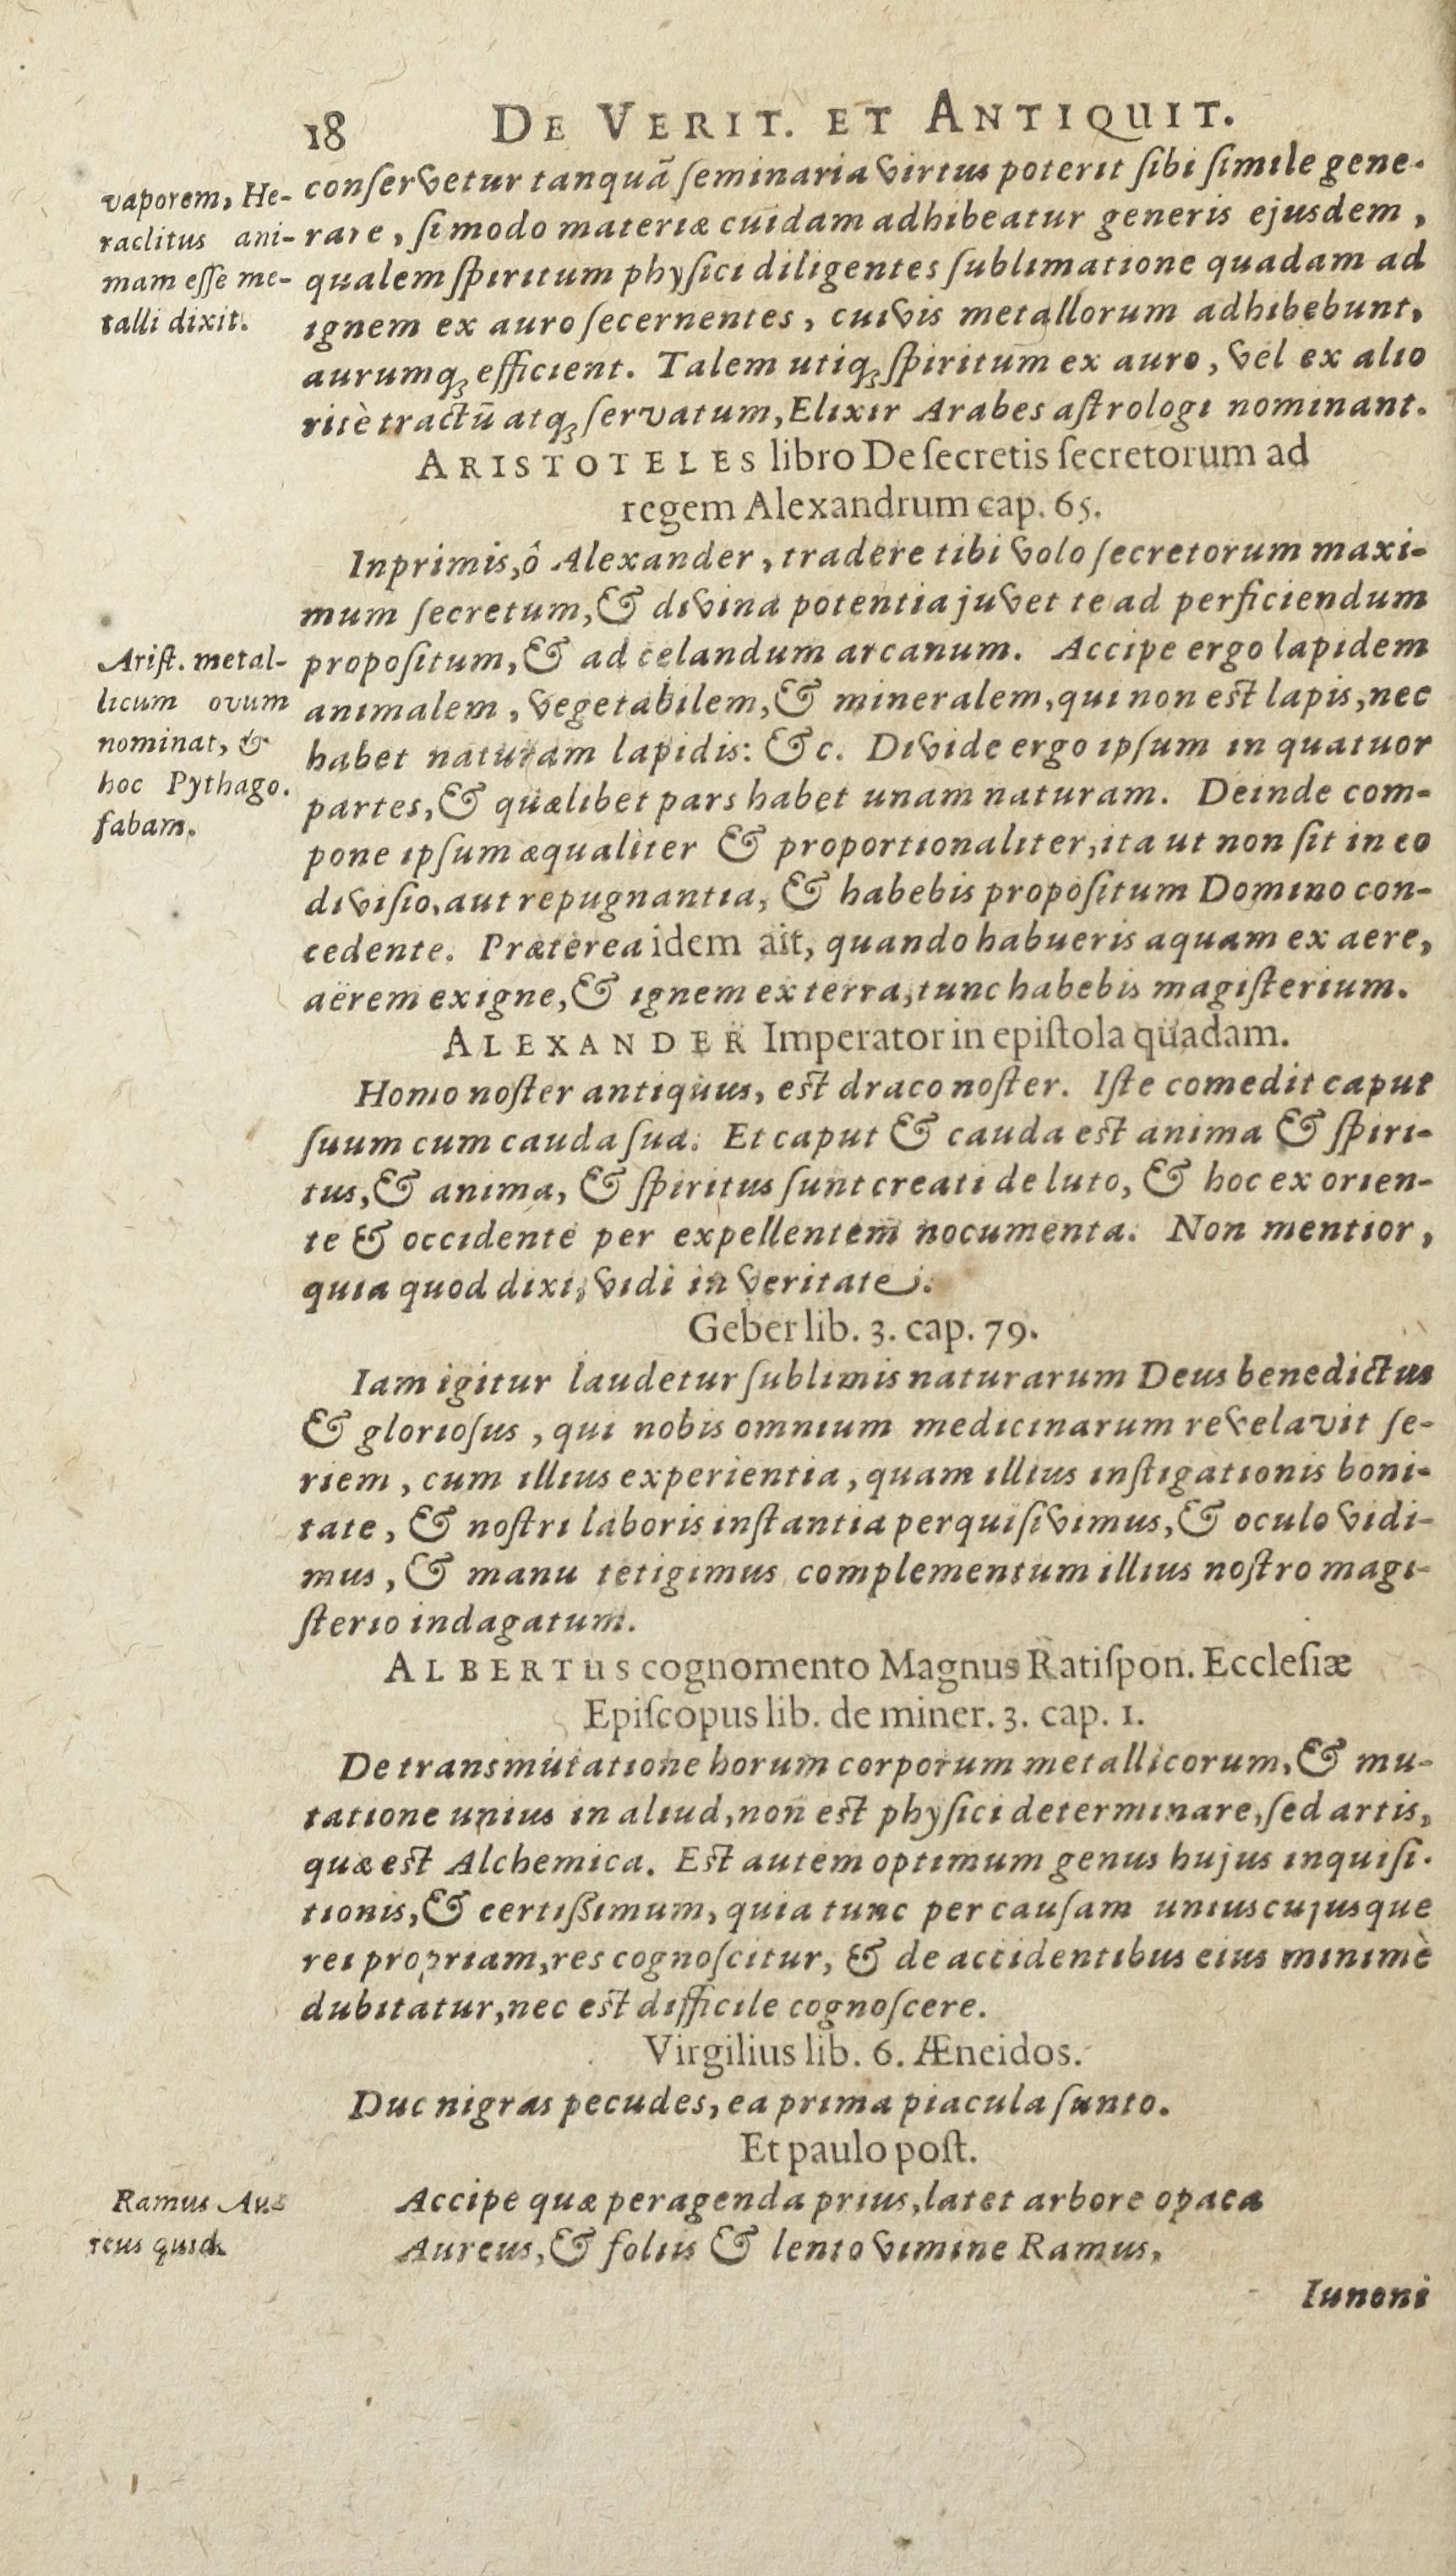 18 DE VERIT. ET ANTIQUIT.
vaporem, He-
raclitus ani-
mam eſſe me-
talli dixit.
conſervetur tanquā ſeminaria virtus poterit ſibi ſimile gene-
rare, ſi modo materiæ cuidam adhibeatur generis ejusdem,
qualem ſpiritum phyſici diligentes ſublimatione quadam ad
ignem ex auro ſecernentes, cuivis metallorum adhibebunt,
aurumq́; efficient. Talem utiq; ſpiritum ex auro, vel ex alio
ritè tractū atq; ſervatum, Elixir Arabes aſtrologi nominant.
ARISTOTELES libro De ſecretis ſecretorum ad
regem Alexandrum cap. 65.
Inprimis, ô Alexander, tradere tibi volo ſecretorum maxi-
mum ſecretum, & divina potentia juvet te ad perficiendum
Ariſt. metal-
licum ovum
nominat, &
hoc Pythago.
fabam.
propoſitum, & ad celandum arcanum. Accipe ergo lapidem
animalem, vegetabilem, & mineralem, qui non est lapis, nec
habet naturam lapidis: &c. Divide ergo ipſum in quatuor
partes, & quælibet pars habet unam naturam. Deinde com-
pone ipſum æqualiter & proportionaliter, ita ut non ſit in eo
diviſio, aut repugnantia, & habebis propoſitum Domino con-
cedente. Præterea idem ait, quando habueris aquam ex aere,
aërem ex igne, & ignem ex terra, tunc habebis magiſterium.
ALEXANDER Imperator in epiſtola quadam.
Homo noſter antiquus, est draco noſter. Iſte comedit caput
ſuum cum cauda ſua. Et caput & cauda est anima & ſpiri-
tus, & anima, & ſpiritus ſunt creati de luto, & hoc ex orien-
te & occidente per expellentem nocumenta. Non mentior,
quia quod dixi, vidi in veritate.
Geber lib. 3. cap. 79.
Iam igitur laudetur ſublimis naturarum Deus benedictus
& glorioſus, qui nobis omnium medicinarum revelavit ſe-
riem, cum illius experientia, quam illius inſtigationis boni-
tate, & noſtri laboris inſtantia perquiſivimus, & oculo vidi-
mus, & manu tetigimus complementum illius noſtro magi-
ſterio indagatum.
ALBERTUS cognomento Magnus Ratiſpon. Eccleſiæ
Epiſcopus lib. de miner. 3. cap. 1.
De transmutatione horum corporum metallicorum, & mu-
tatione unius in aliud, non est phyſici determinare, ſed artis,
quæ est Alchemica. Est autem optimum genus hujus inquiſi-
tionis, & certiſsimum, quia tunc per cauſam uniuscujusque
rei propriam, res cognoſcitur, & de accidentibus eius minimè
dubitatur, nec est difficile cognoſcere.
Virgilius lib. 6. Æneidos.
Duc nigras pecudes, ea prima piacula ſunto.
Et paulo poſt.
Ramus Au-
reus quid.
Accipe quæ peragenda prius, latet arbore opaca
Aureus, & foliis & lento vimine Ramus,
Iunoni